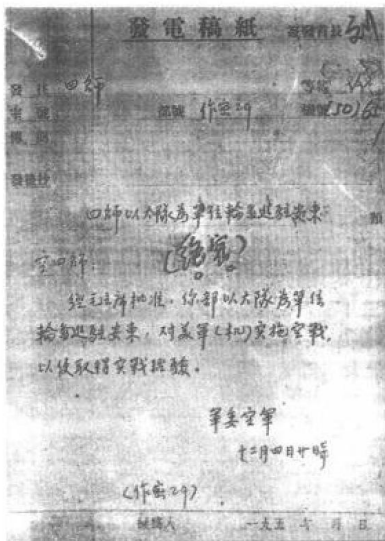 發電稿紙
發往 四師
部號 作密29
四師以大隊為單位輪番進駐安東
(絕密)
空四師:
經毛主席批准,你部以大隊為單位
輪番進駐安東,对美軍(机)实施空戰,
以便取得实戰經驗。
軍委空軍
十二月四日廿時
(作密29)
擬稿人 一九五 年 月 日